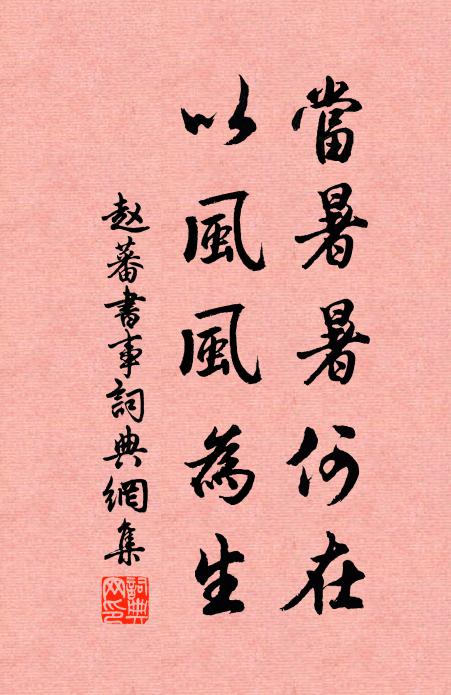 當暑暑何在
以風風為生
赵蕃書事詞典網集
詞典網印